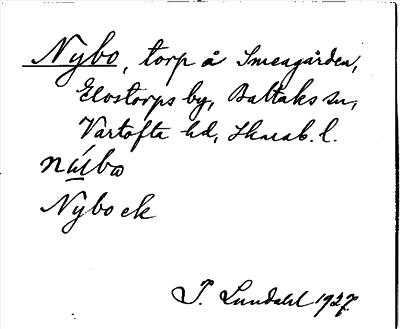 Nybo, torp å Smeagården,
Elostorps by, Baltaks sn,
Vartofta hd, Skarab. l.
Nybo ek
T. Lundahl 1927.